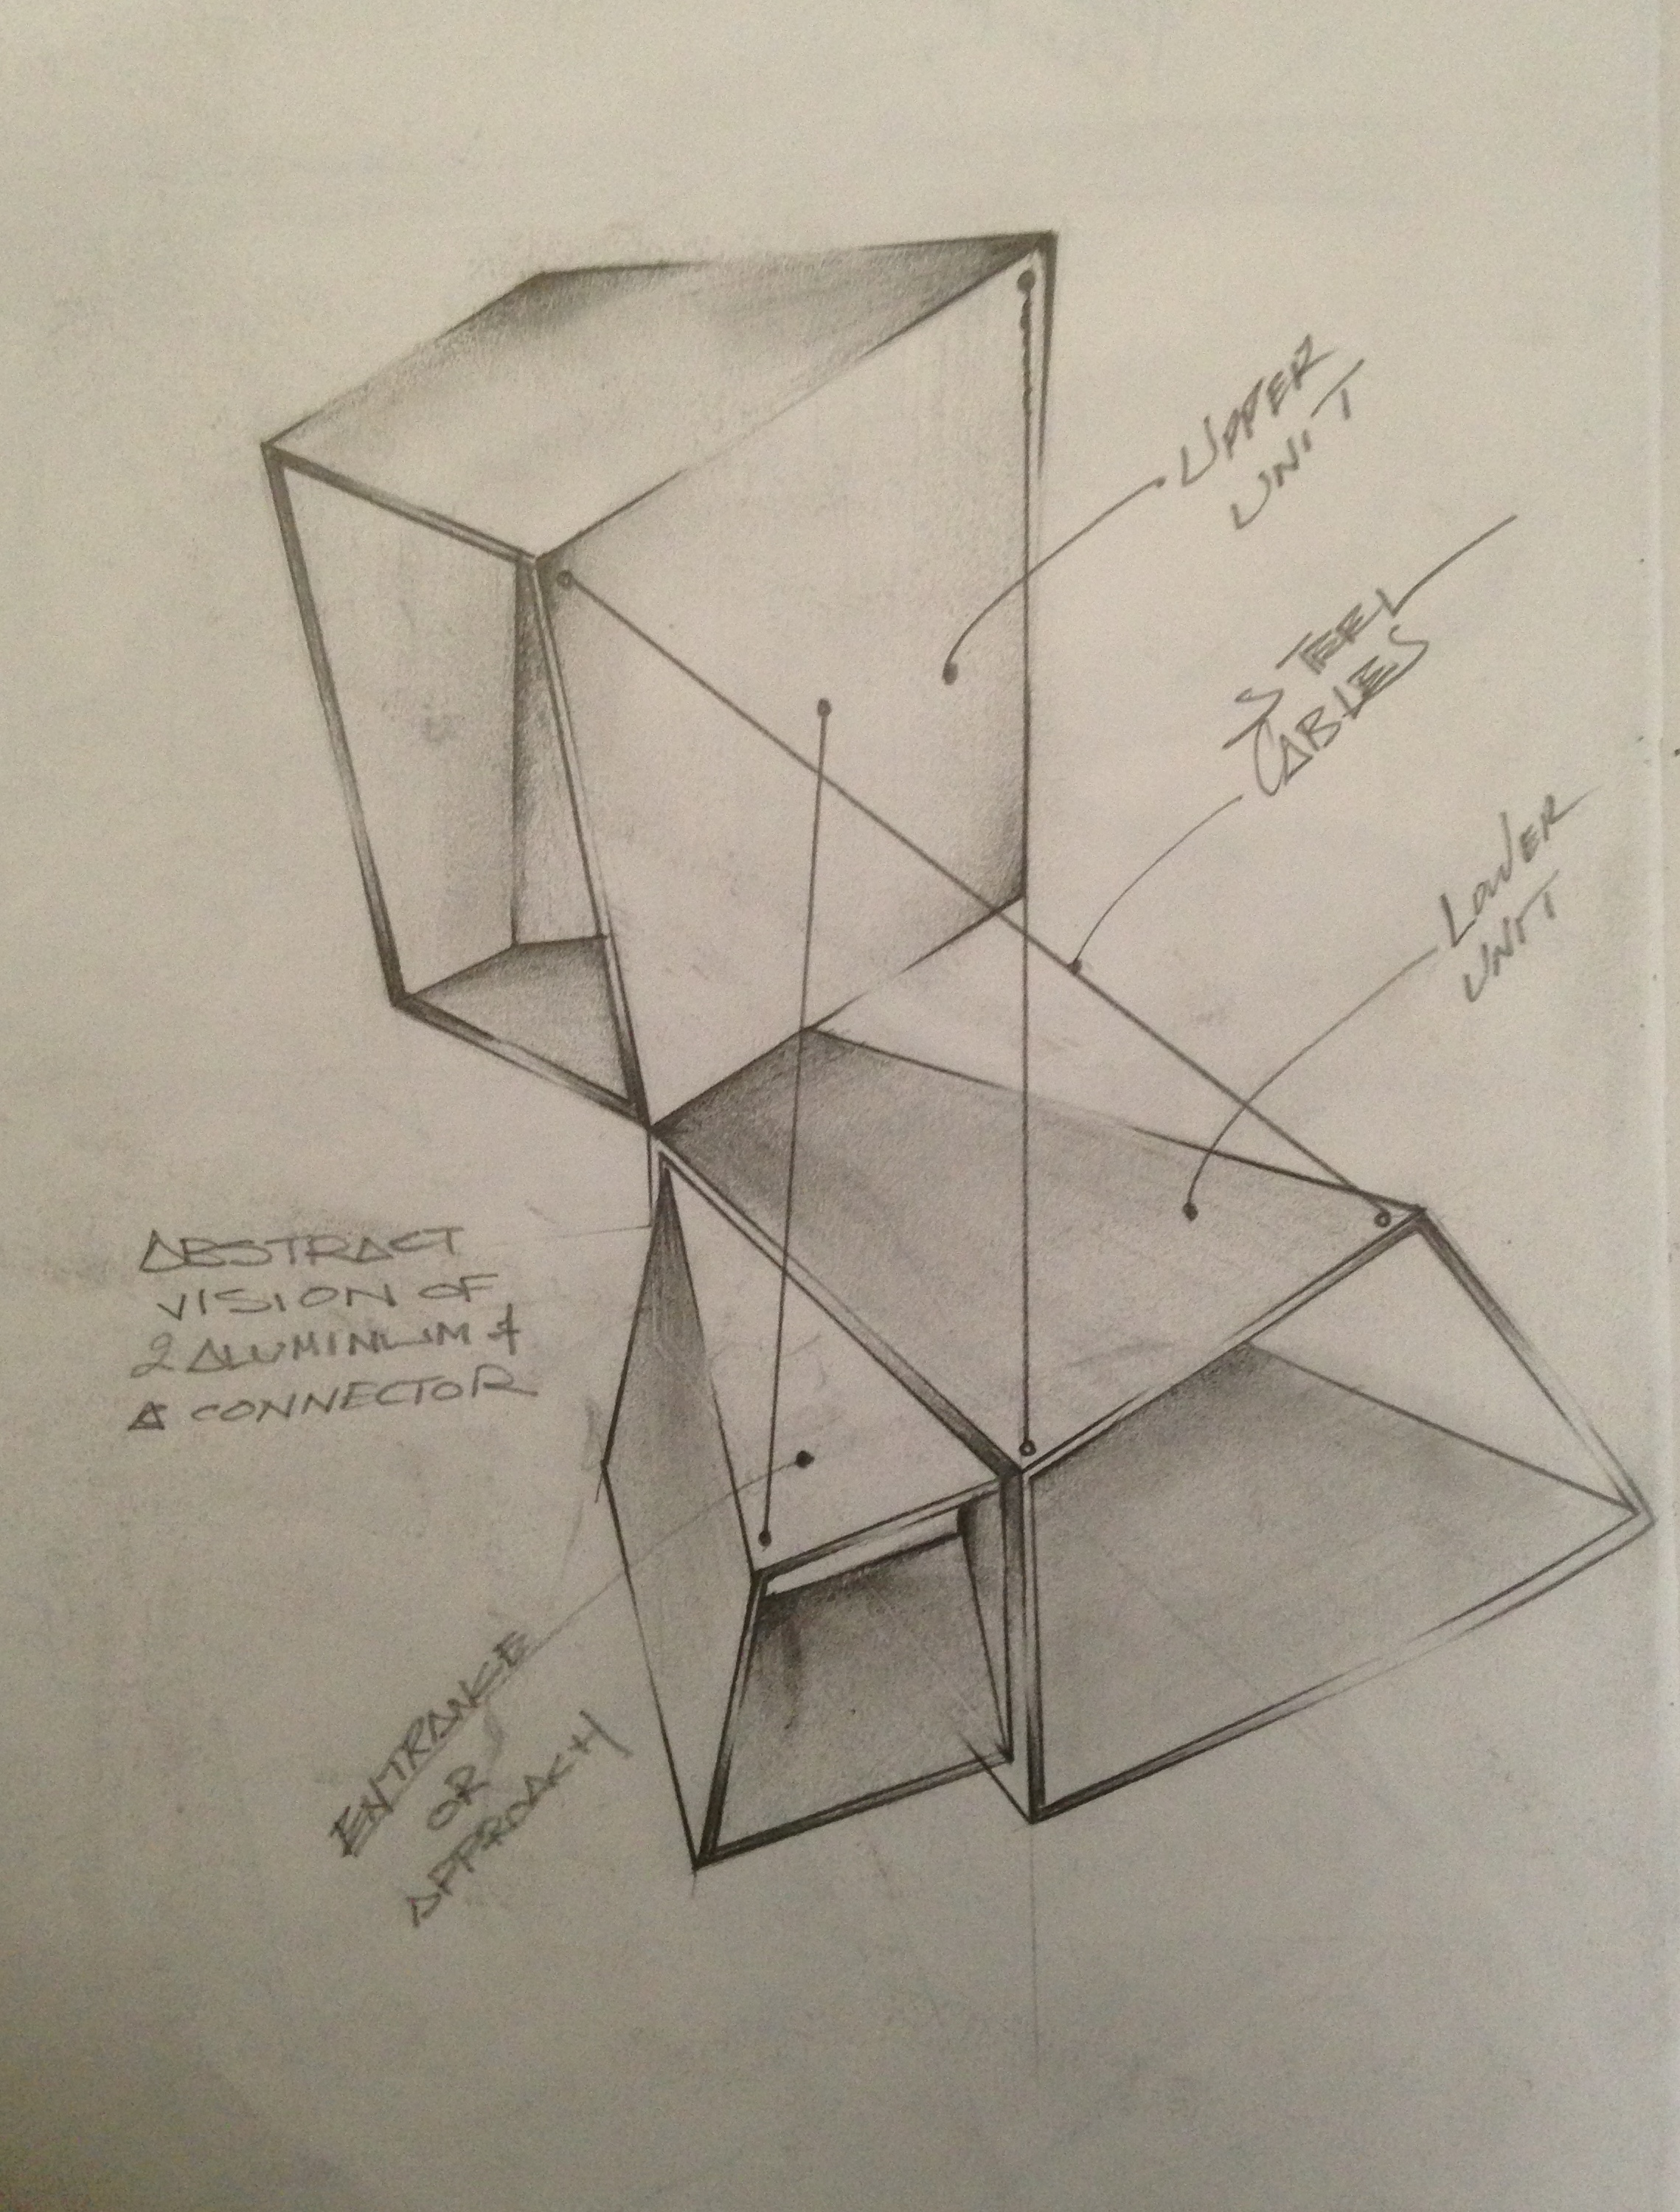 UPPER
UNIT
STEEL
CABLES
LOWER
UNIT
ABSTRACT
VISION OF
2 ALUMINUM &
A CONNECTOR
ENTRANCE
OR
APPROACH